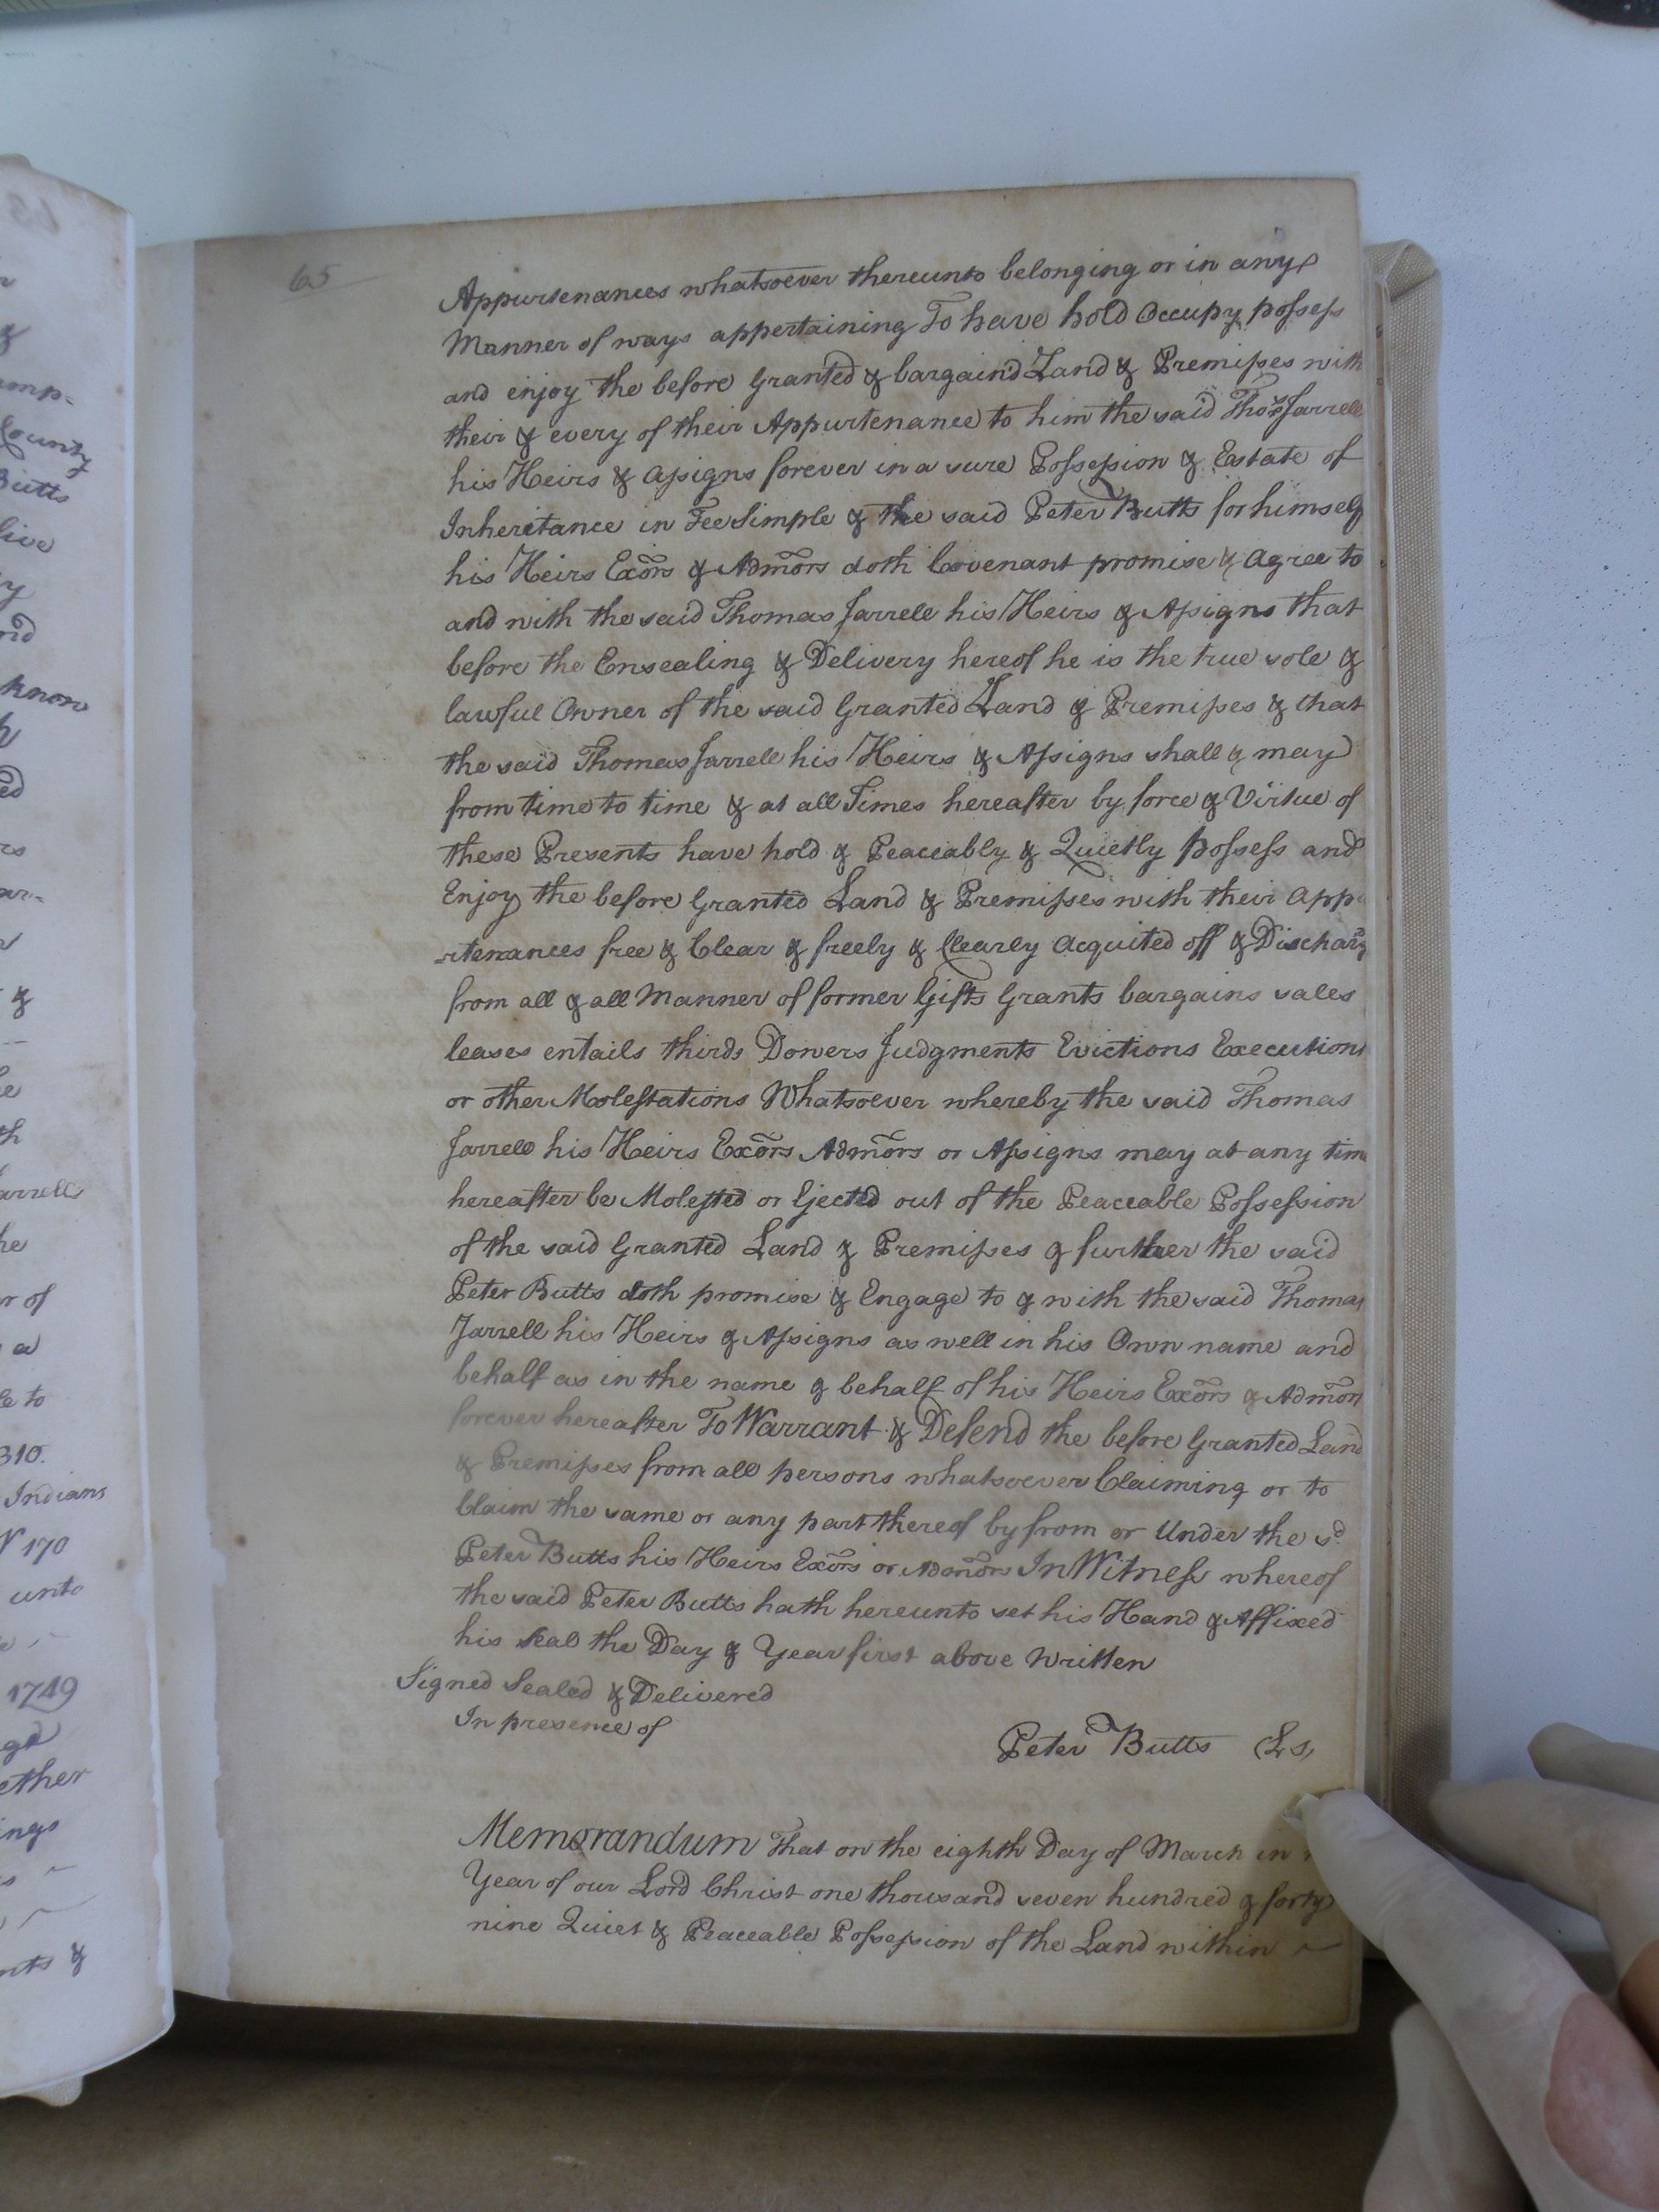 65
Appurtenances whatsoever thereunto belonging or in any
Manner of ways appertaining To have hold Occupy possess
and enjoy the before Granted & bargain'd Land & Premisses with
their & every of their Appurtenance to him the said Thos. Jarrell
his Heirs & Assigns forever in a sure Possession & Estate of
Inheritance in Fee Simple & the said Peter Butts for himself
his Heirs Exors & Admors doth Covenant promise & Agree to
and with the said Thomas Jarrell his Heirs & Assigns that
before the Ensealing & Delivery hereof he is the true sole &
lawful Owner of the said Granted Land & Premisses & that
the said Thomas Jarrell his Heirs & Assigns shall & may
from time to time & at all Times hereafter by force & Virtue of
these Presents have hold & Peaceably & Quietly Possess and
Enjoy the before Granted Land & Premisses with their App
rtenances free & Clear & freely & Clearly Acquited off & Discharg
from all & all Manner of former Gifts Grants bargains sales
leases entails thirds Dowers Judgments Evictions Executions
or other Molestations Whatsoever whereby the said Thomas
Jarrell his Heirs Exors Admors or Assigns may at any time
hereafter be Molested or Ejected out of the Peaceable Possession
of the said Granted Land & Premisses & further the said
Peter Butts doth promise & Engage to & with the said Thomas
Jarrell his Heirs & Assigns as well in his Own name and
behalf as in the name & behalf of his Heirs Exors & Admors
forever hereafter To Warrant & Defend the before Granted Land
& Premisses from all persons whatsoever Claiming or to
Claim the same or any part thereof by from or Under the sd.
Peter Butts his Heirs Exors or Admors In Witness whereof
the said Peter Butts hath hereunto set his Hand & Affixed
his Seal the Day & Year first above Written
Signed Sealed & Delivered
In presence of
Peter Butts (Ls)
Memorandum That on the eighth Day of March in
Year of our Lord Christ one thousand seven hundred & forty
nine Quiet & Peaceable Possession of the Land within
County
Butts
live
know
Jarrell
he
or of
a
le to
310.
Indians
170
unto
1749
ether
ings
&